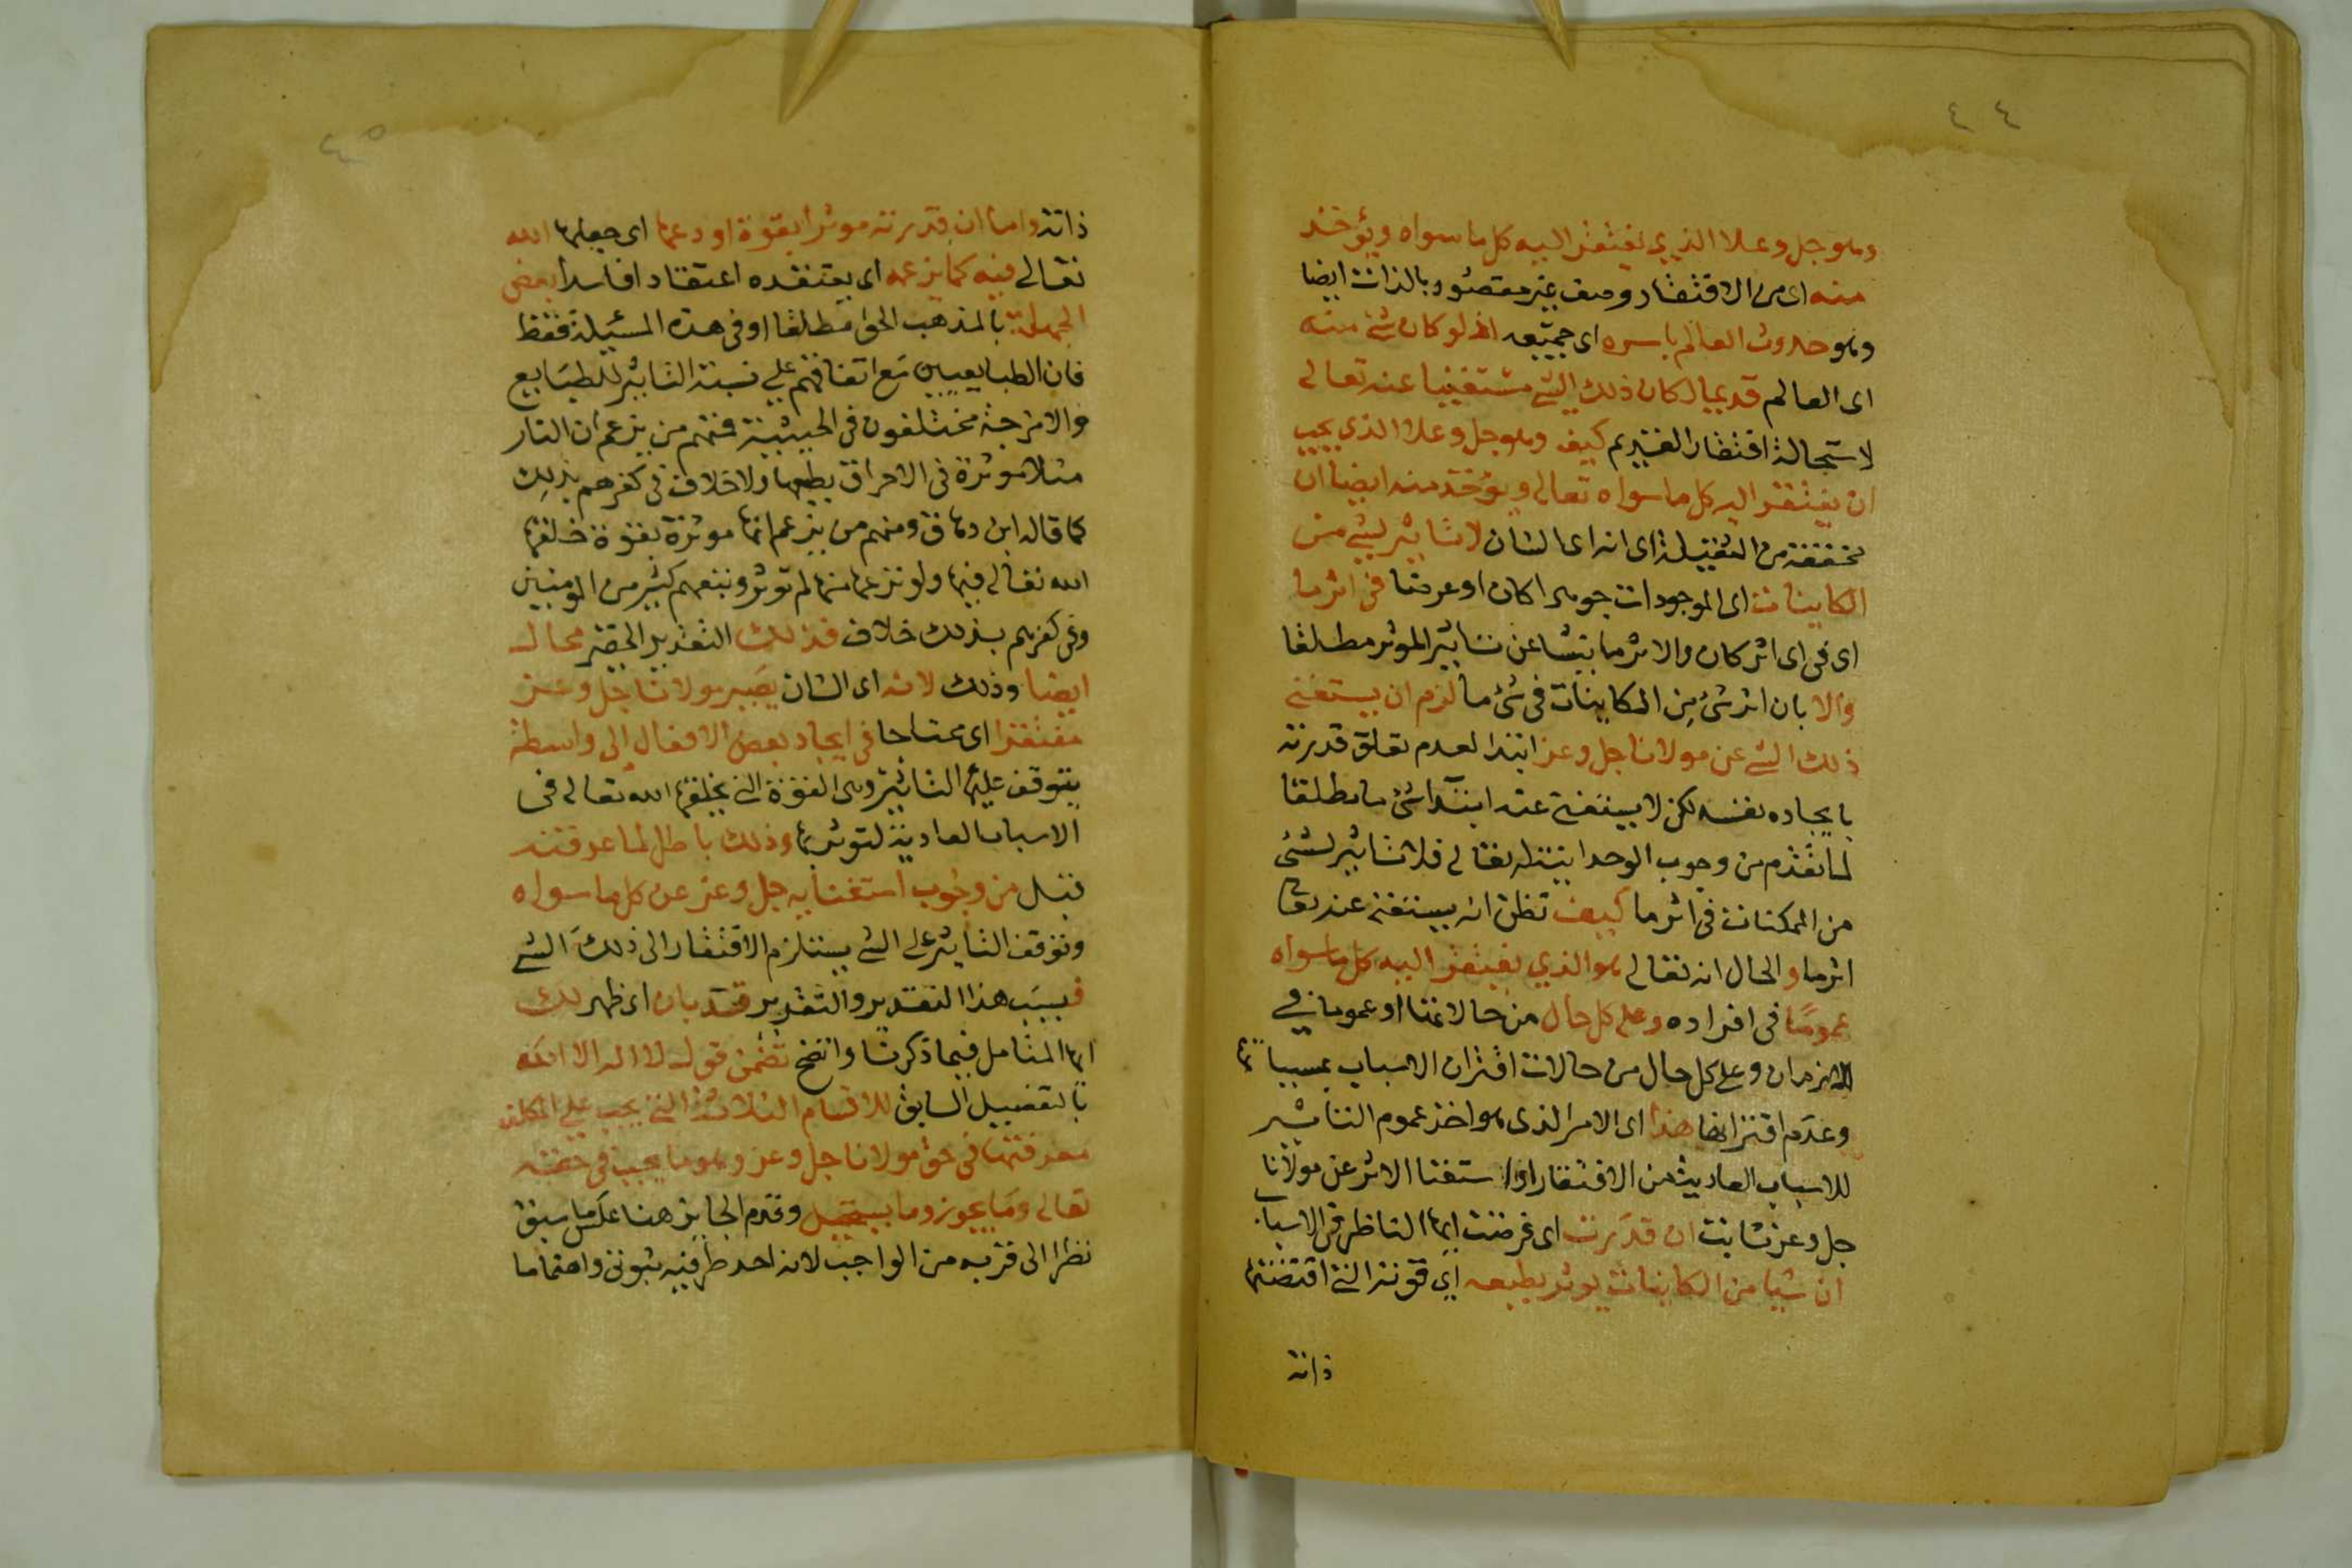 ٤٤
وهو جل وعلا الذي يفتقر اليه كل ما سواه ويؤخذ
منه اى من الافتقار وصف غير مقصود بالذات ايضا
وهو حدوث العالم باسره اى جميعه اذ لو كان شئ منه
اى العالم قديما لكان ذلك الشئ مستغنيا عنه تعالى
لاستحالة افتقار القديم كيف وهو جل وعلا الذي يجب
ان يفتقر اليه كل ما سواه تعالى ويؤخذ منه ايضا ان
مخففة من الثقيلة اى انه اى الشان لا تاثير لشئ من
الكاينات اى الموجودات جوهرا كان او عرضا في اثر ما
اى في اى اثر كان والاثر ما ينشا عن تاثير الموثر مطلقا
والا بان اثر شئ من الكاينات في شئ ما لزم ان يستغنى
ذلك الشئ عن مولانا جل وعز ابتدا لعدم تعلق قدرته
بايجاده نفسه لكن لا يستغنى عنه ابتدا شئ ما مطلقا
لما تقدم من وجوب الوحدانية له تعالى فلا تاثير لشئ
من الممكنات في اثر ما كيف تظن انه يستغنى عنه تعا
اثر ما والحال انه تعالى هو الذي يفتقر اليه كل ما سواه
عموما في افراده وعلى كل حال من حالاتها او عموما في
الازمان وعلى كل حال من حالات اقتران الاسباب بمسبباتها
وعدم اقترانها هذا اى الامر الذى هو اخذ عموم التاثير
للاسباب العادية من الافتقار او استغنا الاثر عن مولانا
جل وعز ثابت ان قدرت اى فرضت ايها الناظر في الاسباب
ان شيا من الكاينات يوثر بطبعه اي قوته التى اقتضتها
ذاته
٤٥
ذاته واما ان قدرته موثرا بقوة اودعها اى جعلها الله
تعالى فيه كما يزعمه اى يعتقده اعتقادا فاسدا بعض
الجهلة بالمذهب الحق مطلقا او في هذه المسئيلة فقط
فان الطبايعيين مع اتفاقهم على نسبة التاثير للطبايع
والامزجة مختلفون في الحيثية فمنهم من يزعم ان النار
مثلا موثرة في الاحراق بطبعها ولا خلاف في كفرهم بذلك
كما قاله ابن دهاق ومنهم من يزعم انها موثرة بقوة خلقها
الله تعالى فيها ولو نزعها منها لم توثر وتبعهم كثير من المومنين
وفي كفرهم بذلك خلاف فذلك التقدير الحقير محال
ايضا وذلك لانه اى الشان يصير مولانا جل وعز
مفتقرا اى محتاجا في ايجاد بعض الافعال الى واسطة
يتوقف عليها التاثير وهى القوة التى يخلقها الله تعالى فى
الاسباب العادية لتوثر بها وذلك باطل لما عرفته
قبل من وجوب استغنايه جل وعز عن كل ما سواه
وتوقف التاثير على الشئ يستلزم الافتقار الى ذلك الشئ
فبسبب هذا التقدير والتقدير قد بان اى ظهر لك
ايها المتامل فيما ذكرنا واتضح تضمن قول لا اله الا الله
بالتفصيل السابق للاقسام الثلاثة التى يجب على المكلف
معرفتها في حق مولانا جل وعز وهو ما يجب في حقه
تعالى وما يجوز وما يستحيل وقدم الجايز هنا عكس ما سبق
نظرا الى قربه من الواجب لانه احد طرفيه ثبوتى واهتماما